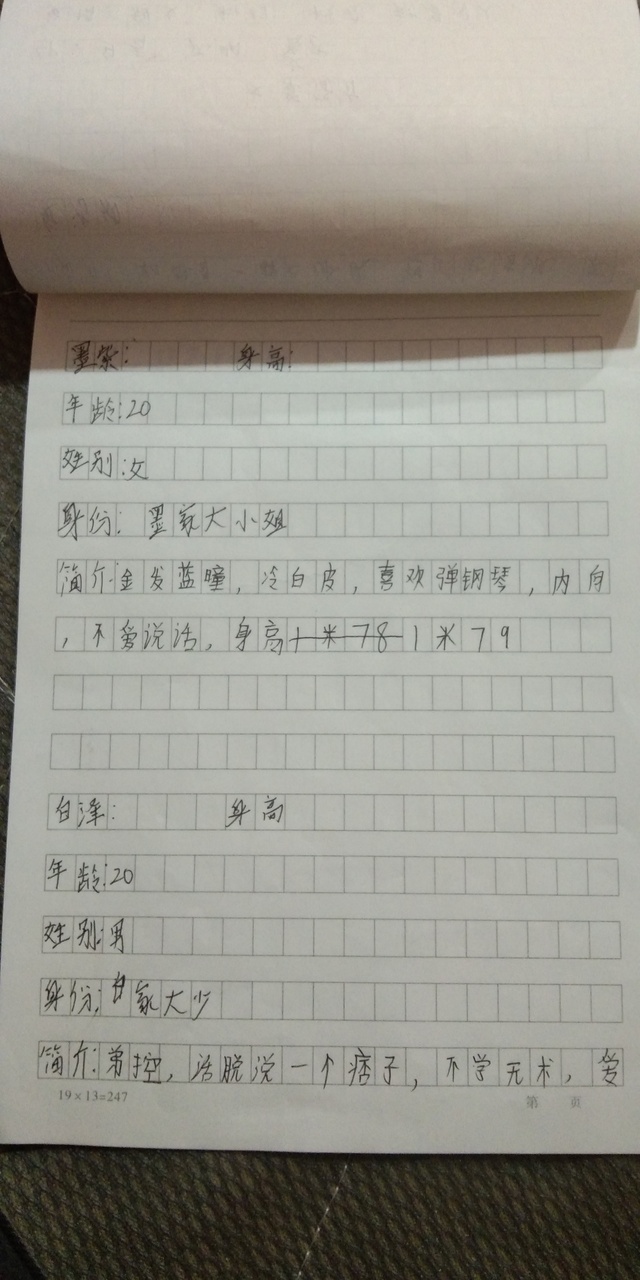 墨紫： 身高：
年龄：20
姓别：女
身份：墨家大小姐
简介：金发蓝瞳，冷白皮，喜欢弹钢琴，内向
，不爱说话，身高1米78 1米79
白泽： 身高
年龄：20
姓别：男
身份：白家大少
简介：弟控，活脱说一个痞子，不学无术，爱
19×13=247 第 页